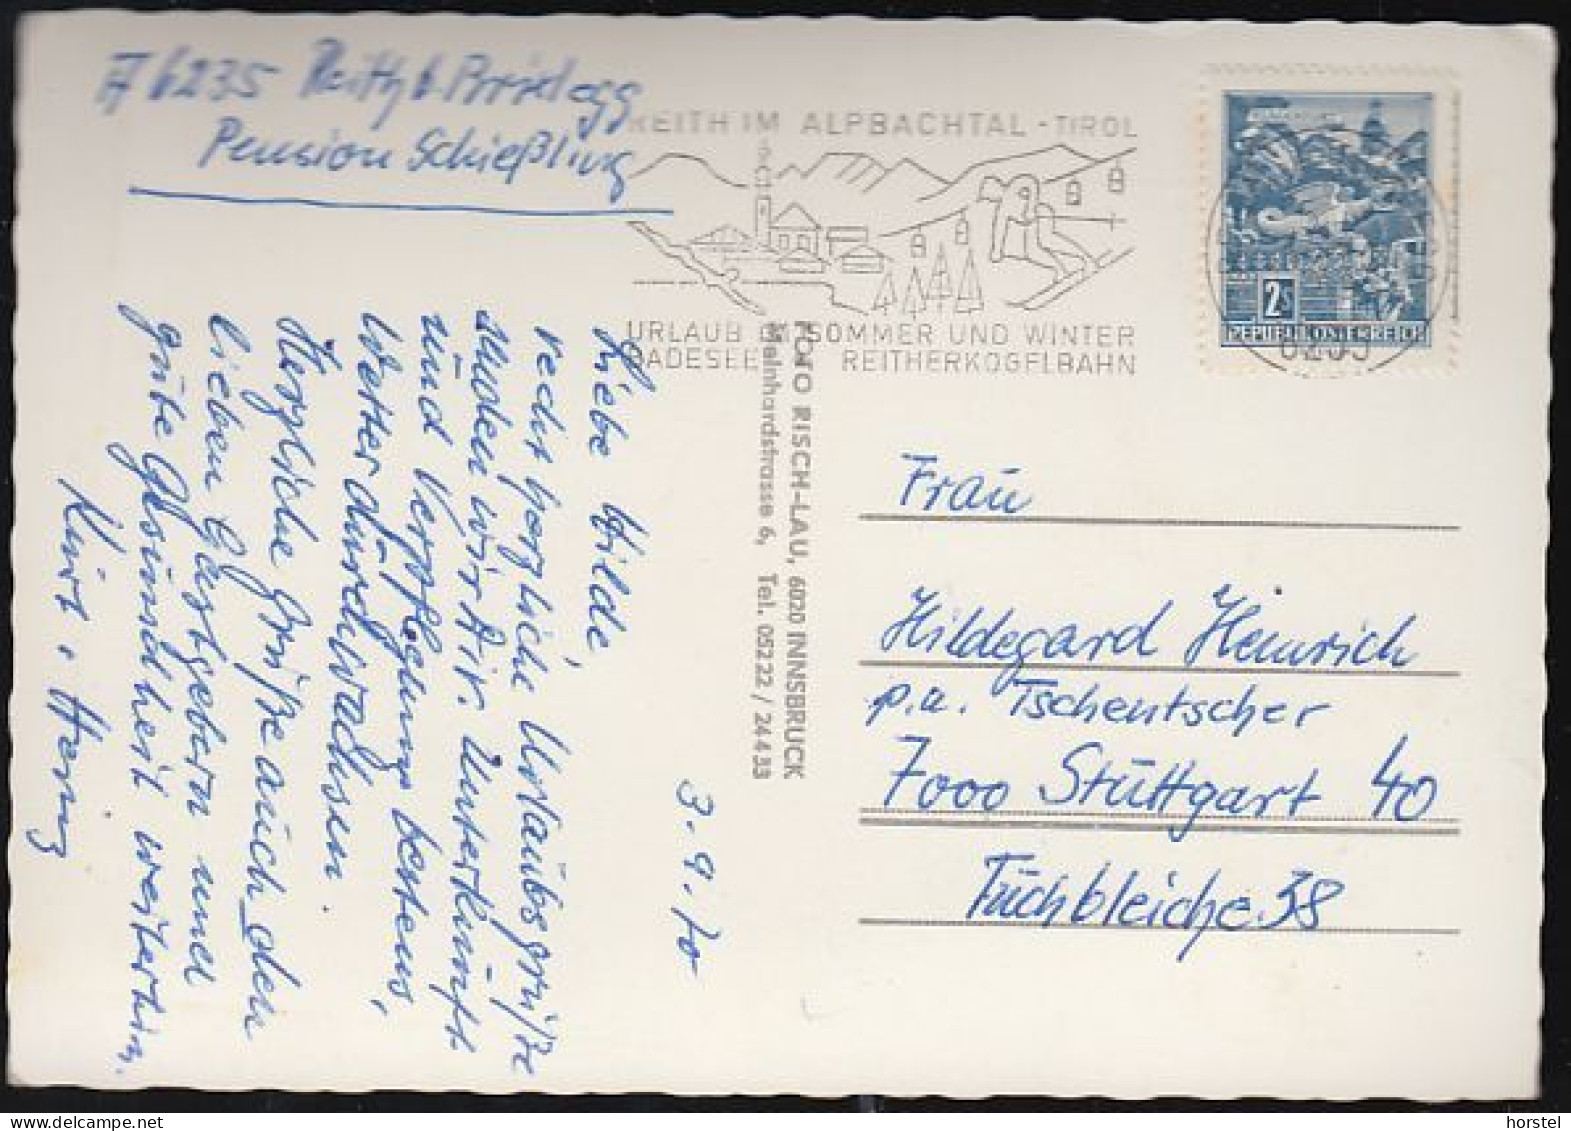 A 6235 Reith b. Brixlegg
Pension Schießling
REITH IM ALPBACHTAL - TIROL
URLAUB IM SOMMER UND WINTER
BADESEE REITHERKOGELBAHN
2S
REPUBLIK ÖSTERREICH
6235
FOTO RISCH-LAU, 6020 INNSBRUCK
Meinhardstrasse 6, Tel. 05222 / 24433
3.9.70
Liebe Hilde,
recht herzliche Urlaubsgrüße
senden wir Dir. Unterkunft
und Verpflegung bestens,
Wetter durchwachsen.
Herzliche Grüße auch den
lieben Gastgebern und
gute Gesundheit weiterhin.
Kurt u.
Frau
Hildegard Heinrich
p.a. Tschentscher
7000 Stuttgart 40
Tuchbleiche 38
Horstel